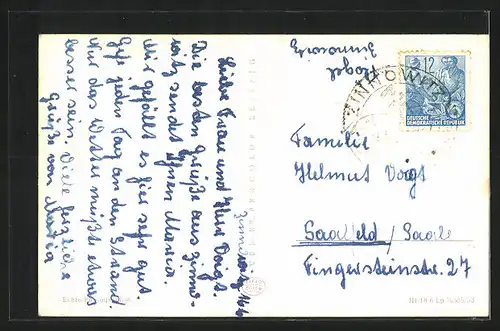 Zinnowitz,
Liebe Frau und Herr Voigt.
Die besten Grüße aus Zinno-
witz sendet Ihnen Maria.
Mir gefällt es hier sehr gut
Gehe jeden Tag an den Strand.
Nur das Wetter müßte etwas
besser sein. Viele herzliche
Grüße von Maria
ZINNOWITZ
12
DEUTSCHE
DEMOKRATISCHE REPUBLIK
Familie
Helmut Voigt
Saalfeld/Saale
Fingersteinstr. 27